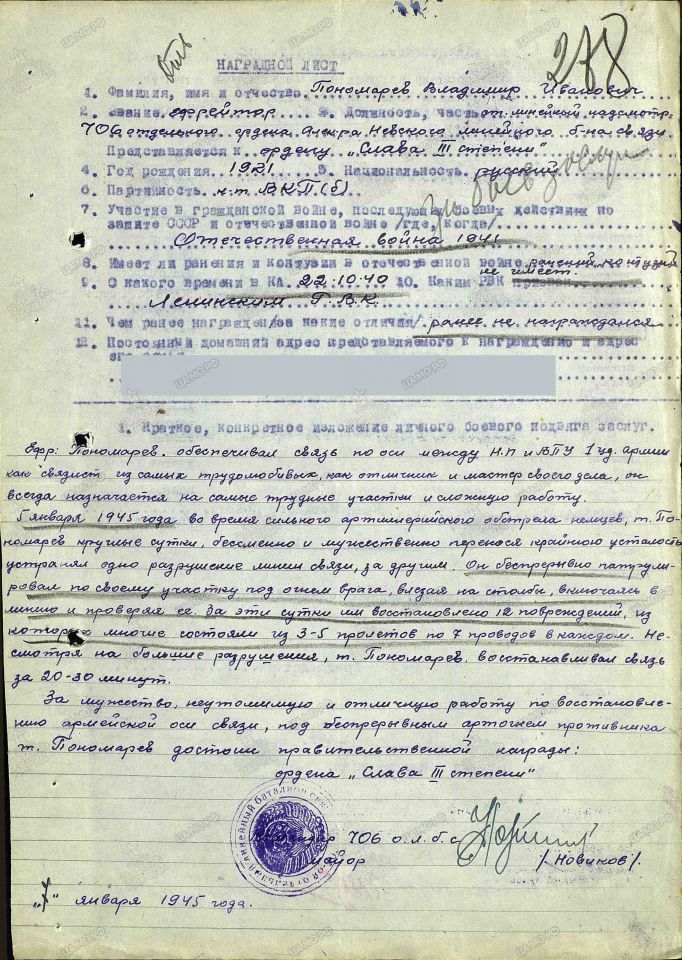 278
НАГРАДНОЙ ЛИСТ
1. Фамилия, имя и отчество Пономарев Владимир Иванович
2. Звание ефрейтор 3. Должность, часть ст. линейный надсмотр.
706 отдельного ордена Алек-ра Невского линейного б-на связи
Представляется к ордену „Слава III степени"
4. Год рождения 1921 5. Национальность русский
6. Партийность к-т ВКП(б)
7. Участие в гражданской войне, последующих боевых действиях по
защите СССР и отечественной войне /где, когда/
Отечественная война 1941
8. Имеет ли ранения и контузии в отечественной войне ранений, контузий
не имеет.
9. С какого времени в КА 22.10.40 10. Каким РВК призван
Ленинским Г.В.К.
11. Чем ранее награжден/за какие отличия/ ранее не награждался
12. Постоянный домашний адрес представляемого к награждению и адрес
его семьи
1. Краткое, конкретное изложение личного боевого подвига заслуг.
Ефр: Пономарев. обеспечивал связь по оси между Н.П и ВПУ 1 уд. армии
как связист из самых трудолюбивых, как отличник и мастер своего дела, он
всегда назначается на самые трудные участки и сложную работу.
5 января 1945 года во время сильного артиллерийского обстрела немцев, т. По-
номарев круглые сутки, бессменно и мужественно перенося крайнюю усталость
устранял одно разрушение линии связи, за другим. Он беспрерывно патрули-
ровал по своему участку под огнем врага, вылезая на столбы, включаясь в
линию и проверяя ее. За эти сутки им восстановлено 12 повреждений, из
которых многие состояли из 3-5 пролетов по 7 проводов в каждом. Не-
смотря на большие разрушения, т. Пономарев. восстанавливал связь
за 20-30 минут.
За мужество, неутомимую и отличную работу по восстановле-
нию армейской оси связи, под беспрерывным артогнем противника
т. Пономарев достоин правительственной награды:
ордена „Слава III степени"
706 о.л.б.с.
майор /Новиков/.
„7" января 1945 года.